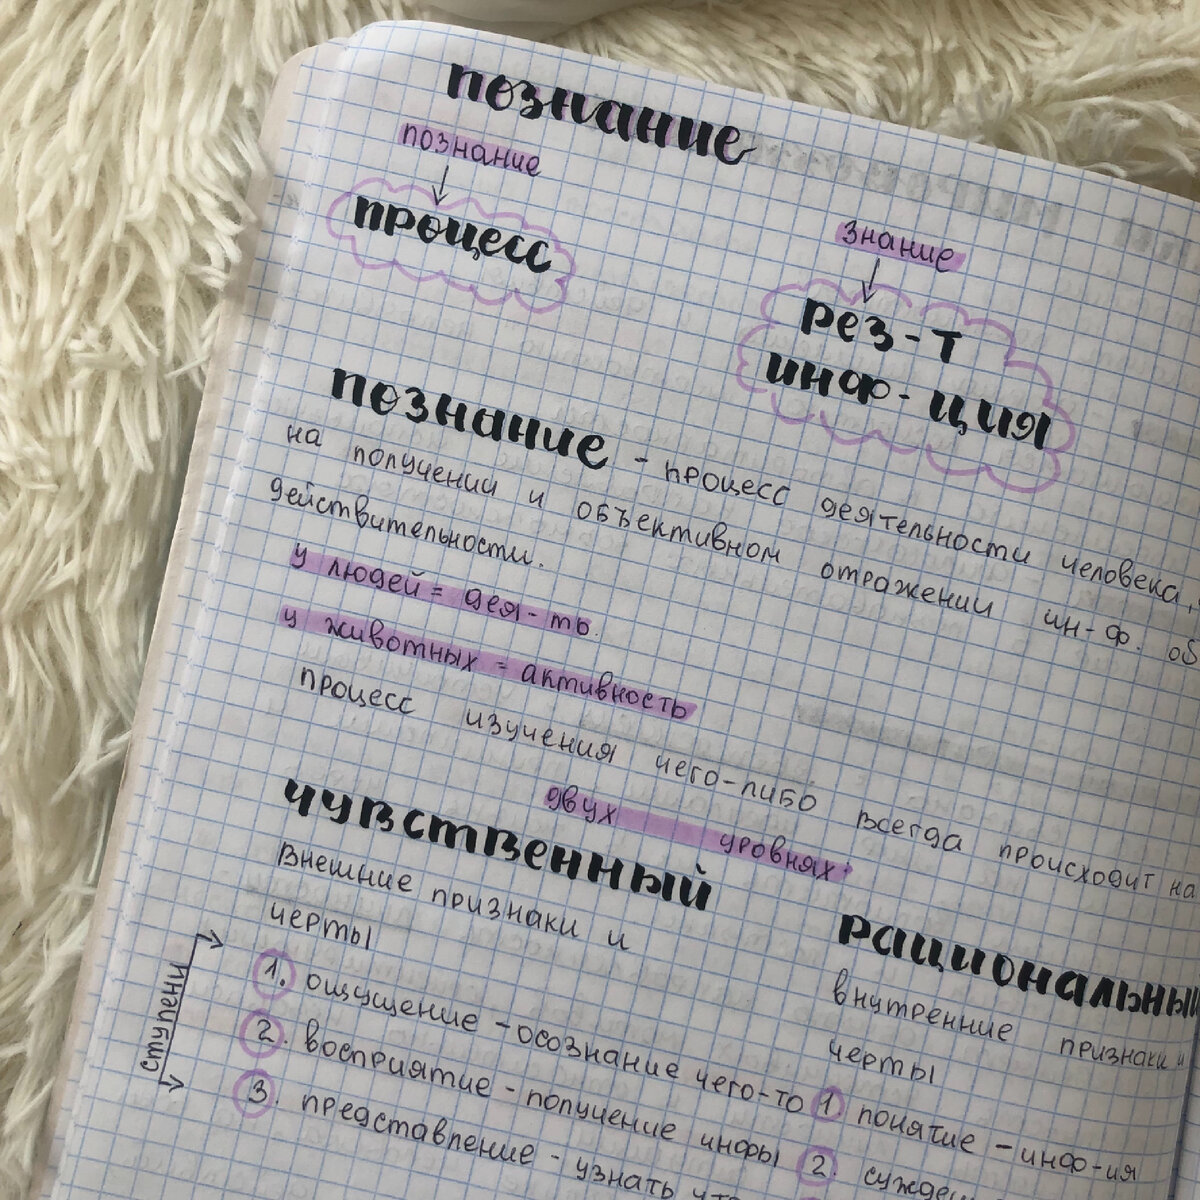 познание
познание
процесс
знание
рез-т
инф-ция
познание - процесс деятельности человека,
на получении и объективном отражении ин-ф. об
действительности.
у людей = дея-ть.
у животных = активность
процесс изучения чего-либо всегда происходит на
двух уровнях:
чувственный
внешние признаки и
черты
ступени
1. ощущение - осознание чего-то
2. восприятие - получение инфы
3. представление - узнать что
рациональный
внутренние признаки и
черты
1 понятие - инф-ия
2.